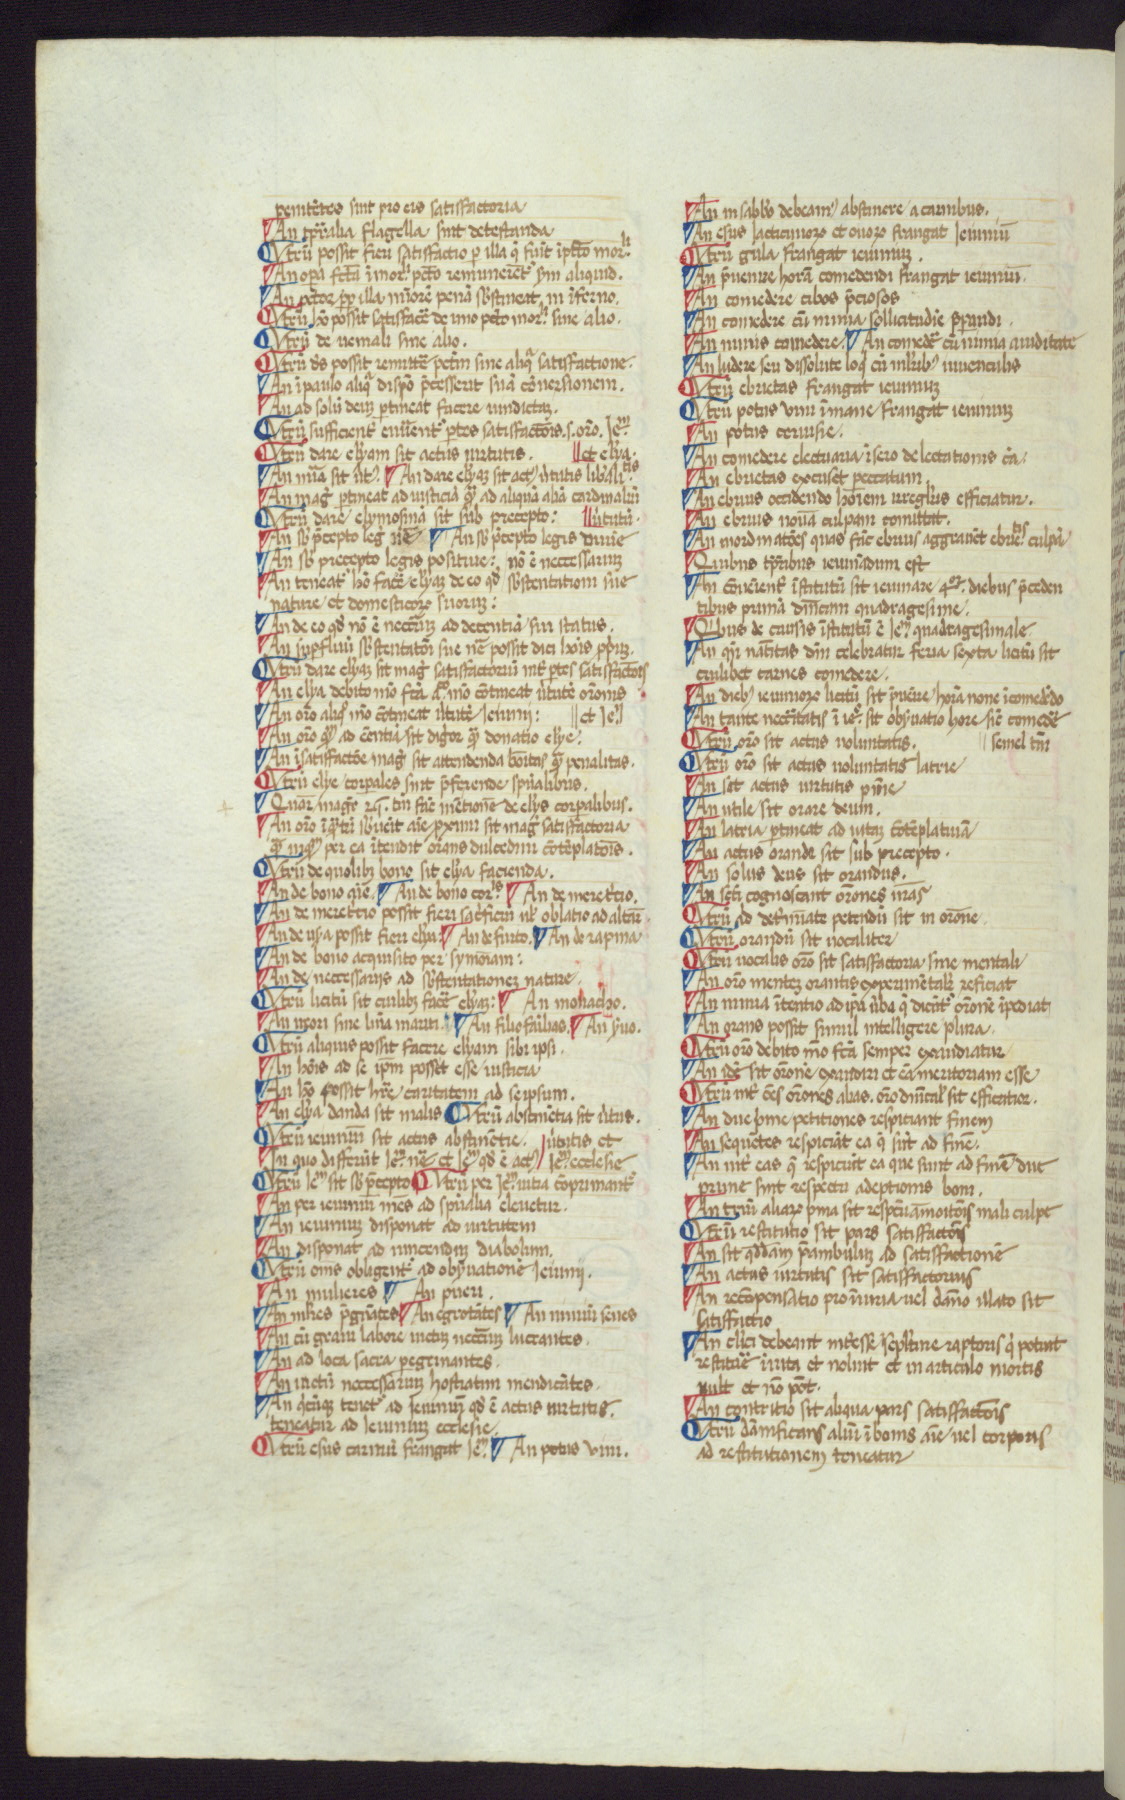 penitētes sint pro eis satisfactoria
An tp̄ralia flagella sint detestanda
Vtrū possit fieri satisfactio p illa q̄ fiūt ī pctō mor.li
An opa fctā ī mor.i pctō remunerēt.r sm aliquid.
An pctor pp illa minorē penā sb̄stineat in īferno.
Vtrū hō possit satisfacē de uno pctō mor.i sine alio.
Vtrū de ueniali sine alio.
Vtrū ds possit remittē pctm sine aliq̄ satisfactione.
An ī paulo aliq̄ dispō p̄cesserit suā cōuersionem.
An ad solū deuȝ ptineat facere uindictaȝ.
Vtrū sufficient.r euīent.r ptes satisfactōis .s. orō. Ieȝ
Vtrū dare elyam sit actus uirtutis. ‖ et elya.
An mīa sit ūt.9 An dare elyaȝ sit act9 ūtutis libālitis
An maḡ ptineat ad iusticiā q̄ ad aliquā aliā cardinaliū
Vtrū dare elymosinā sit sub precepto: ‖ ūtutū.
An sb̄ p̄cepto leḡ nē An sb̄ p̄cepto legis diuīe
An sb̄ precepto legis positiue: nō ē necessarium
An teneat.r hō facē elyaȝ de eo qd̄ sb̄stentationi sue
nature et domesticoȝ suorum:
An de eo qd̄ nō ē neccīuȝ ad decentiā sui status.
An supfluū sb̄stentatōi sue nē possit dici
Vtrū dare elyaȝ sit maḡ satisfactoriū int.r ptes satisfactōis
An elya debito mō fctā a͞l.o mō cōtineat ūtutē orōnis
An orō aliq̄ mō cōtineat ūtutē Ieiunij: ‖ et Ieȝ
An orō q̄ ad cēntiā sit digōr q̄ donatio elye.
An ī satisfactōe maḡ sit attendenda bōitas q̄ penalitas.
Vtrū elye corpales sint p̄ferende spūalibus.
Quar maḡr tm̄ fac̄ mētionē de elys corpalibus.
An orō īq̄tū sb̄uēit aīe pximi sit maḡ satisfactoria
q̄ inq̄ per ea ītendit orans dulcedini cōtēplatōis.
Vtrū de quolibȝ bono sit elya facienda.
An de bono aīe. An de bono cor.is An de meret.cio.
An de meret.cio possit fieri sac̄ficiū ul oblatio ad altare
An de usā possit fieri elya. An de furto. An de rapina
An de bono acquisito per symōiam:
An de necessariis ad sb̄stentationeȝ nature
Vtrū licitū sit cuilibȝ facē elyaȝ: An monacho.
An uxori sine līna mariti. An filio familias. An ȳuo.
Vtrū aliquis possit facere elyam sibi ipsi.
An hōis ad se ipm̄ posset esse iusticia
An hō possit hr̄e caritatem ad seipsum.
An elya danda sit malis Vtrū abstinētia sit ūtus.
Vtrū ieiuniū sit actus abstinētie. uirtutis et
In quo differūt Ieȝ nē et Ieȝ qd̄ ē act9 Ieȝ ecclesie
Vtrū Ieȝ sit sb̄ p̄cepto Vtrū per Ieȝ uitia cōprimant.r
An per ieiuniū mēs ad spūalia eleuetur.
An ieiuniuȝ disponat ad uirtutem
An disponat ad uincendum diabolum.
Vtrū oēs obligent.r ad obs̄uationē Ieiunij.
An mulieres An pueri.
An mr̄es p̄gnātes An egrotātes An nimiū senes
An cū graui labore uictum neccīuȝ lucrantes.
An ad loca sacra pegrinantes.
An uictū necessariuȝ hostiatim mendicātes.
An q̄cūqȝ tenet.r ad ieiuniuȝ qd̄ ē actus uirtutis
teneatur ad Ieiunium ecclesie
Vtrū esus carniū frangat Ieȝ An potus uini.
An in sabb.o debeam.9 abstinere a carnibus.
An esus lacticinioȝ et ouoȝ frangat Ieiuniū
Vtrū gula frangat ieiuniuȝ.
An p̄uenire horā comedendi frangat ieiuniū.
An comedere cibos p̄ciosos
An comedere cū nimia sollicitudīe ppandi.
An nimis comedere. An comedē cū nimia auiditate
An ludere seu dissolute loq̄ cū mlīerib9 iuuenculis
Vtrū ebrietas frangat ieiuniuȝ
Vtrū potus uini ī mane frangat ieiuniuȝ
An potus ceruisie.
An comedere electuaria ī sero delectationis cā.
An ebrietas excuset peccatum
An ebrius occidendo hōiem irreglīs efficiatur.
An ebrius nouā culpam comittat.
An inordinatōes quas fac̄ ebrius aggrauēt ebrietis culpā
Quibus tp̄ribus ieiunādum est
An cōueniēt.r īstitutū sit ieiunare .4.or diebus p̄ceden
tibus primā dīnicam quadragesime.
Q.ibus de causis īstitutū ē Ieȝ quadragesimale
An qn̄ natiītas dn̄i celebratur feria sexta licitū sit
cuilibet carnes comedere.
An dieb9 ieiunioȝ licitū sit p̄uēire horā none ī comedēdo
An tante necc̄itatis ī ieȝ. sit obs̄uatio hore sic̄ comedē
Vtrū orō sit actus uoluntatis. ‖ semel tm̄
Vtrū orō sit actus uoluntatis latrie
An sit actus uirtutis pnīe
An utile sit orare deum.
An latria ptineat ad uitaȝ cōtēplatiuā
An actus orandi sit sub precepto.
An solus deus sit orandus.
An scti cognoscant orōnes nrās
Vtrū ad det.rminate petendū sit in orōne
Vtrū orandū sit uocaliter
Vtrū uocalis orō sit satisfactoria sine mentali
An orō menteȝ orantis experimētalr̄ reficiat
An nimia ītentio ad ipā ūba q̄ dicūt.r orōne īpediat
An orans possit simul intelligere plura.
Vtrū orō debito mō fctā semper exaudiatur
An idē sit orōnē exaudiri et eā meritoriam esse
Vtrū int.r oēs orōnes alias. orō dnīcal sit efficatior.
An due prime petitiones respiciant finem
An sequētes respiciāt ea q̄ sūt ad finē.
An int.r eas q̄ respiciūt ea que sunt ad finē due
prime sint respectu adeptionis boni.
An triū aliaȝ prima sit respctu amoītōis mali culpe
Vtrū restitutio sit pars satisfactōis
An sit qd̄dam p̄ambulum ad satisfactionē
An actus uirtutis sit satisfactorius
An recōpensatio pro iniuria uel dāno illato sit
satisfactio
An clīci debeant int.resse sepltīne raptoris q̄ potuit
restitūe īuita et noluit et in articulo mortis
uult et nō pōt.
An contritio sit aliqua pars satisfactōis
Vtrū dānificans aliū ī bonis aīe uel corporis
ad restitutionem teneatur